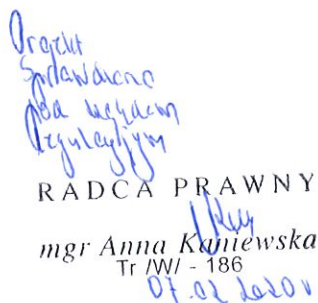 Projekt
Sprawdzono
pod względem
legislacyjnym
RADCA PRAWNY
mgr Anna Kaniewska
Tr /W/ - 186
07.02 2020 r